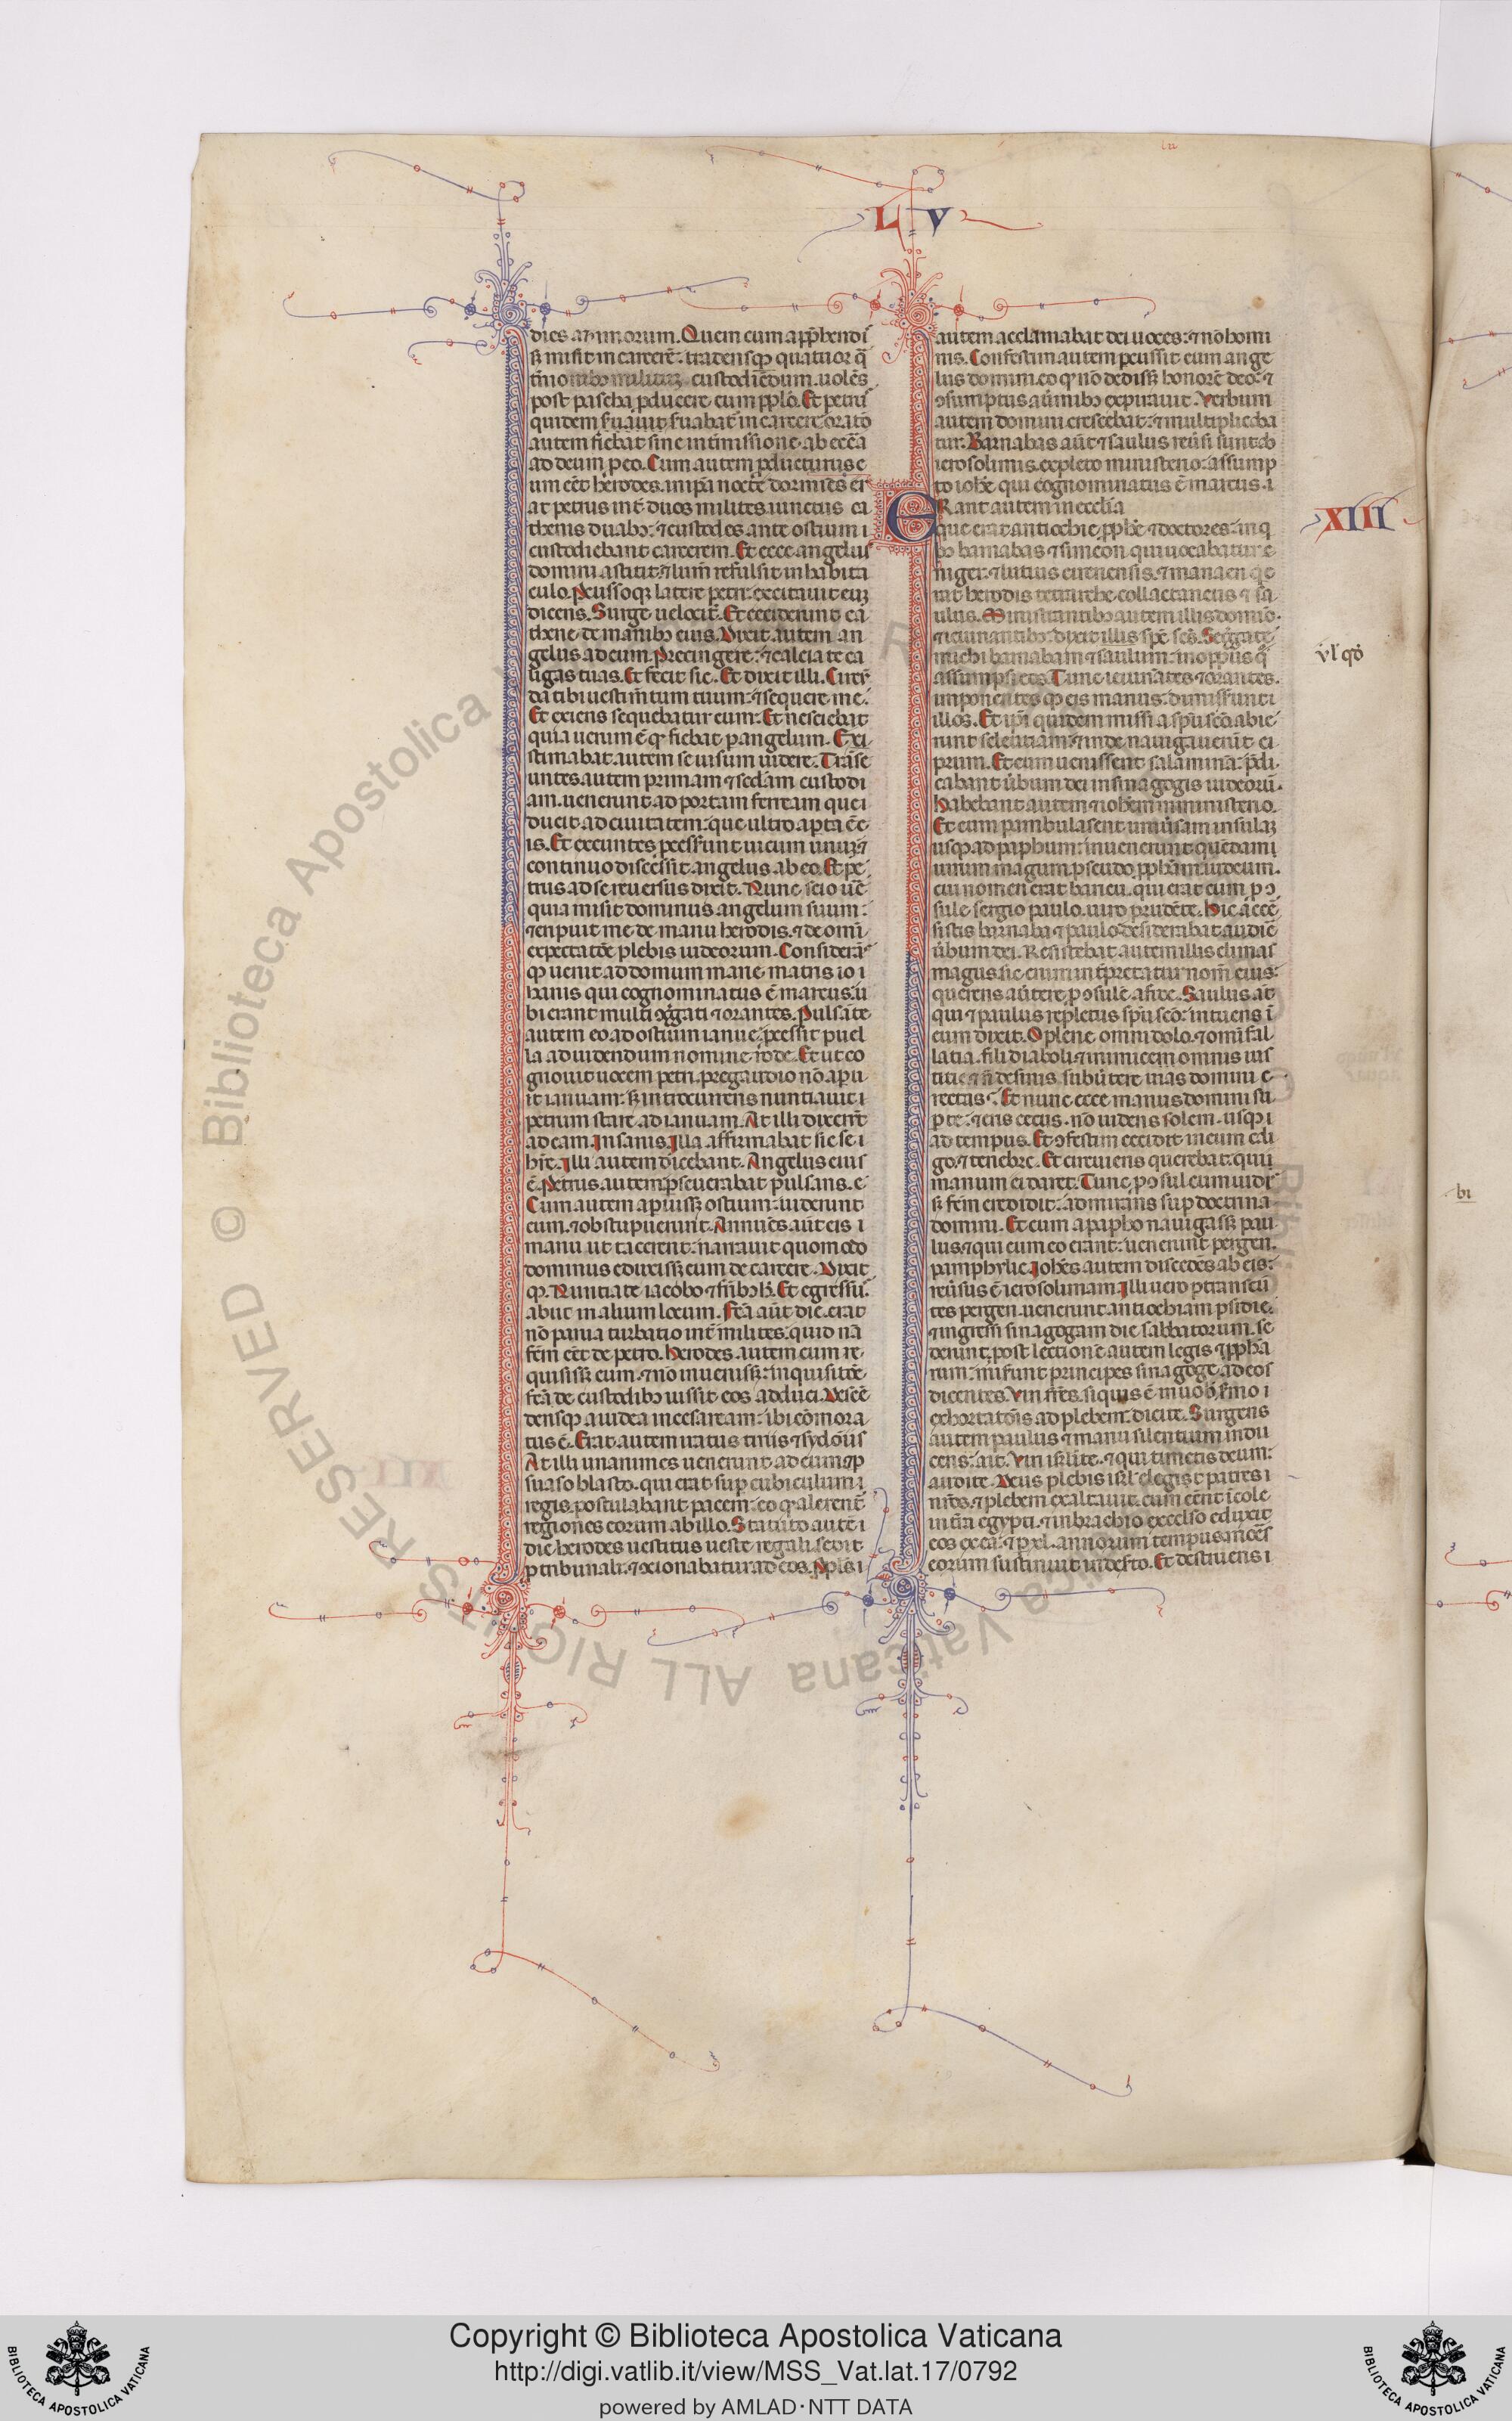 L V
dies açimorum. Quem cum app̃hendi
ß misit in carcerẽ: tradensqꝫ quatuor q̃
t̃nionibꝫ militũ custodiẽdum. uolẽs
post pascha ꝓducere eum ppl̃o. Et petrus
quidem ẜuabat̃ in carcere. orato
autem fiebat sine int̃missione. ab ecc̃a
ad deum ꝓ eo. Cum autem ꝓducturus e
um eẽt herodes. in ip̃a nocte dormiẽs er
at petrus int̃ duos milites iunctus ca
thenis duabꝫ: ⁊custodes ante ostium i
custodiebant carcerem. Et ecce angelus
domini astitit: ⁊lum̃ refulsit in habita
culo. Percussoqꝫ latere petri: excitauit euꝫ
dicens. Surge uelocit̃. Et ceciderunt ca
thene de manibꝫ eius. Dixit autem an
gelus ad eum. Precingere: ⁊calcia te ca
ligas tuas. Et fecit sic. Et dixit illi. Circũ
da tibi uestim̃tum tuum: ⁊sequere me.
Et exiens sequebatur eum: Et nesciebat
quia uerum ẽ qꝫ fiebat ꝑ angelum. Exi
stimabat autem se uisum uidere. Trãse
untes autem primam ⁊secd̃am custodi
am. uenerunt ad portam ferream que i
ducit ad ciuitatem: que ultro aꝑta ẽ e
is. Et exeuntes ꝓcesserunt uicum unuꝫ: ⁊
continuo discessit angelus ab eo. Et pe
trus ad se reuersus dixit. Nunc scio ue͂
quia misit dominus angelum suum:
⁊eripuit me de manu herodis. ⁊de omni
expectatõe plebis iudeorum. Considerãs
qꝫ uenit ad domum marie matris io i
hanis qui cognominatus ẽ marcus. u
bi erant multi ꝯg̃gati ⁊orantes. Pulsãte
autem eo ad ostium ianue. ꝓcessit puel
la ad uidendum nomine rode. Et ut co
gnouit uocem petri. pre gaudio nõ aꝑu
it ianuam: ß intro currens nuntiauit i
petrum stare ad ianuam. At illi dixerũt
ad eam. Insanis. Illa affirmabat sic se i
hr̃e. Illi autem dicebant. Angelus eius
ẽ. Petrus autem ꝑseuerabat pulsans. e
Cum autem aꝑuissẽ ostium: uiderunt
eum. ⁊obstupuerunt. Annuẽs aũt eis i
manu ut tacerent: narrauit quomodo
dominus eduxissẽ eum de carcere. Dixit
qꝫ. Nuntiate iacobo ⁊fr̃ibꝫ h̃. Et egressus
abiit in alium locum. Fc̃a aũt die. erat
nõ parua turbatio int̃ milites: quid nã
fc̃m eẽt de petro. Herodes autem cum re
quisissẽ eum. ⁊ no inuenissẽ: inquisitõe
fc̃a de custodibꝫ iussit eos adduci. Descẽ
densqꝫ a iudea in cesaream: ibi cõmora
tus ẽ. Erat autem iratus tiriis ⁊sydoniis
At illi unanimes uenerunt ad eum: ⁊ꝑ
suaso blasto. qui erat suꝑ cubiculum i
regis. postulabant pacem: eo qꝫ alerent̃
regiones eorum ab illo. Statuto autẽ i
die herodes uestitus ueste regali sedit
ꝓ tribunali: ⁊ꝯcionabatur ad eos. Ppl̃s i
autem acclamabat dei uoces: ⁊nõ homi
nis. Confestim autem ꝑcussit eum ange
lus domini. eo qꝫ nõ dedissẽ honorẽ deo: ⁊
ꝯsumptus a ũmibꝫ expirauit. Verbum
autem domini crescebat: ⁊multiplicaba
tur. Barnabas aũt ⁊saulus reũsi sunt ab
ierosolimis. expleto ministerio: assump
to iohẽ qui cognominatus ẽ marcus. i
ERant autem in ecclia
XIII
que erat antiochie. ꝓphẽ ⁊doctores: in q
bꝫ barnabas ⁊simeon. qui uocabatur e
niger. ⁊lutius cirenensis. ⁊manaen qe
rat herodis tetrarche. collactaneus ⁊sa
ulus. Ministrantibꝫ autem illis domino.
⁊ieiunantibꝫ: dixit illis sp̃c scs̃. Segregate
michi barnabam ⁊saulum: in opus q̃
vl̕ qđ
assumpsi eos. Tunc ieiunãtes ⁊orantes.
imponentesqꝫ eis manus: dimiserunt i
illos. Et ip̃i quidem missi a sp̃u scõ abie
runt seleutiam: ⁊inde nauigauerũt ci
prum. Et cum uenissent salaminã: p̃di
cabant ũbum dei in sinagogis iudeorũ.
Habebant autem ⁊iohẽm in ministerio.
Et cum ꝑambulasent uniũsam insulaꝫ
usqꝫ ad paphum: inuenerunt quẽdam i
uirum magum. pseudo ꝓphãm iudeum.
cui nomen erat barieu. qui erat cum ꝓꝯ
sule sergio paulo. uiro prudẽte. Hic accẽ
sitis barnaba ⁊paulo: desiderabat audie͂
ũbum dei. Resistebat autem illis elimas
magus sic enim int̃pretatur nom̃ eius:
querens aũtere ꝓꝯsulẽ a fide. Saulus aũt
qui ⁊paulus repletus sp̃u scõ: intuens ĩ
eum dixit. O plene omni dolo. ⁊omni fal
latia. fili diaboli. ⁊inimice omnis ius
titie. ⁊ñ desinis subũtere uias domini e
rectas. Et nunc ecce manus domini su
ꝑ te: ⁊eris cecus. nõ uidens solem. usqꝫ i
ad tempus. Et ꝯfestim cecidit in eum cali
go. ⁊tenebre. Et circuiens querebat: qui
manum ei daret. Tunc ꝓꝯsul cum uidi
ß fc̃m credidit: admirãns suꝑ doctrina
domini. Et cum a papho nauigassẽ pau
lus. ⁊qui cum eo erant: uenerunt pergen.
pamphylie. Iohẽs autem discedẽs ab eis:
reũsus ẽ ierosolimam. Illi uero ꝑtranseũ
tes pergen. uenerunt antiochiam pisidie.
⁊ingressi sinagogam die sabbatorum. se
derunt. post lectionẽ autem legis ⁊ꝓpha
rum: miserunt principes sinagoge. ad eos
dicentes. Viri fr̃es. si quis ẽ in uob̃ ẜmo i
exhortatõis ad plebem: dicite. Surgens
autem paulus ⁊manu silentium indi
cens: ait. Viri isrl̃ite. ⁊qui timetis deum:
audite. Deus plebis isrl̃ elegit patres i
nr̃os. ⁊plebem exaltauit. cum eẽnt ĩcole
in tr̃a egypti. ⁊in brachio excelso eduxit
eos ex ea: ⁊ꝑ xl. annorum tempus mores
eorum sustinuit in dẽrto. Et destruens i
bi
© Biblioteca Apostolica Vaticana ALL RIGHTS RESERVED
Copyright © Biblioteca Apostolica Vaticana
http://digi.vatlib.it/view/MSS_Vat.lat.17/0792
powered by AMLAD·NTT DATA
BIBLIOTECA APOSTOLICA VATICANA
BIBLIOTECA APOSTOLICA VATICANA